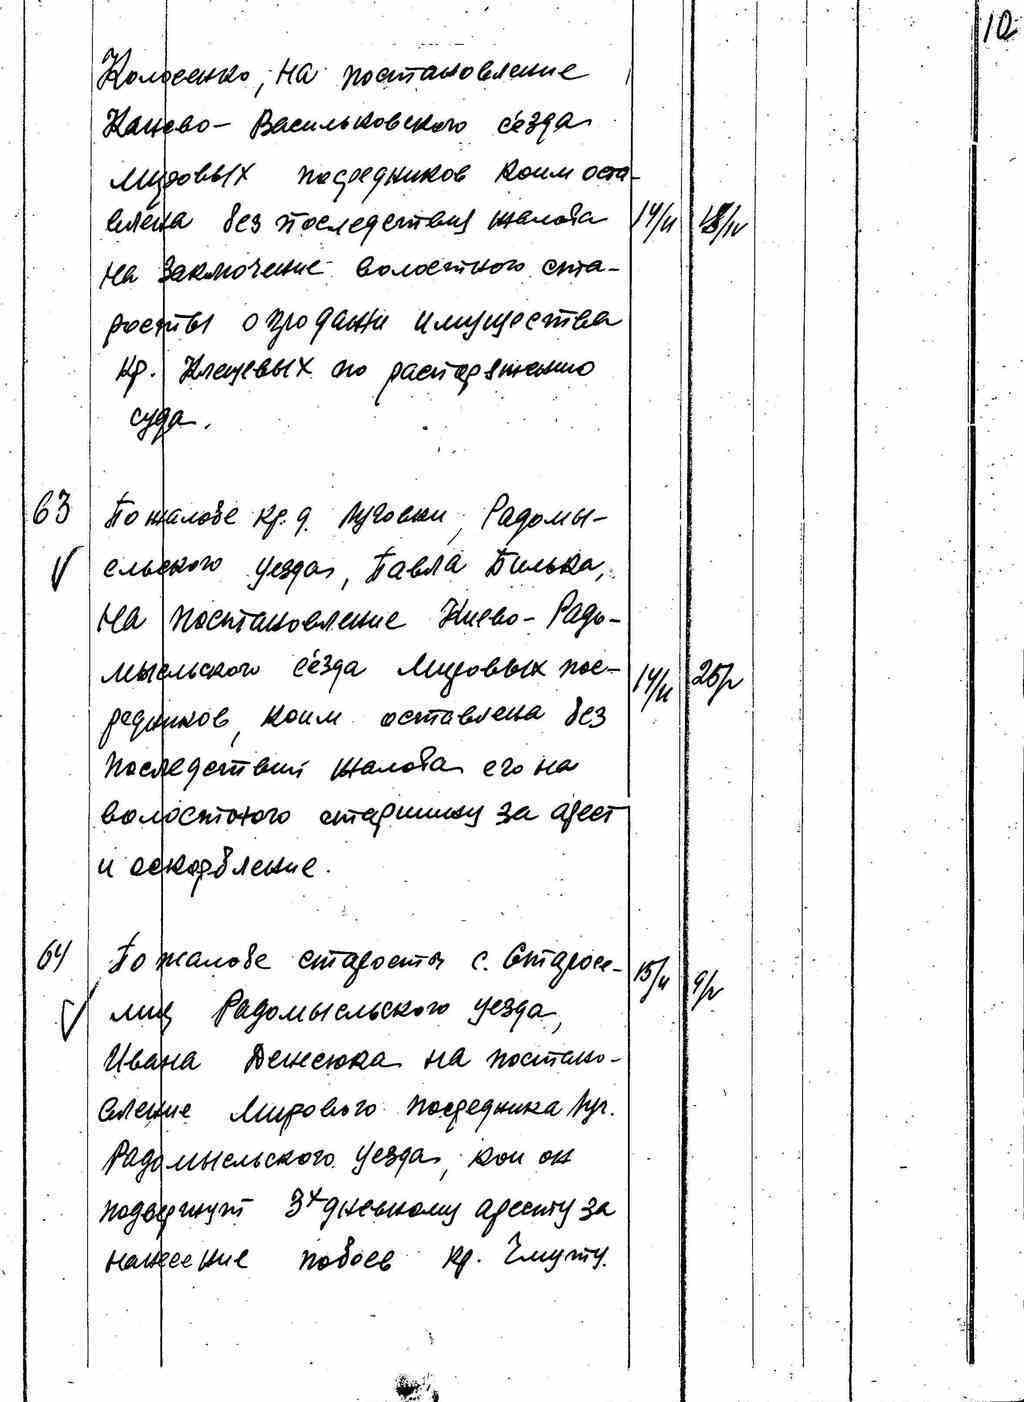 10
Колосенко, на постановление
Канево-Васильковского съезда
мировых посредников коим оста-
влена без последствия жалоба 14/II
на заключение волостного ста-
росты о продажи имущества
кр. Клецевых по распоряжению
суда.
63 По жалобе кр. д. Луговки, Радомы-
сльского уезда, Павла Билька,
на постановление Киево-Радо-
мысльского съезда мировых пос-
редников, коим оставлена без 14/II 25/V
последствий жалоба его на
волостного старшину за арест
и оскорбление.
64 По жалобе старосты с. Старосе-
лиц Радомысльского уезда, 15/II 9/V
Ивана Денсюка на постано-
вление мирового посредника Iуч.
Радомысльского уезда, кои он
подвергнут 3х дневному аресту за
нанесение побоев кр. Чмуту.